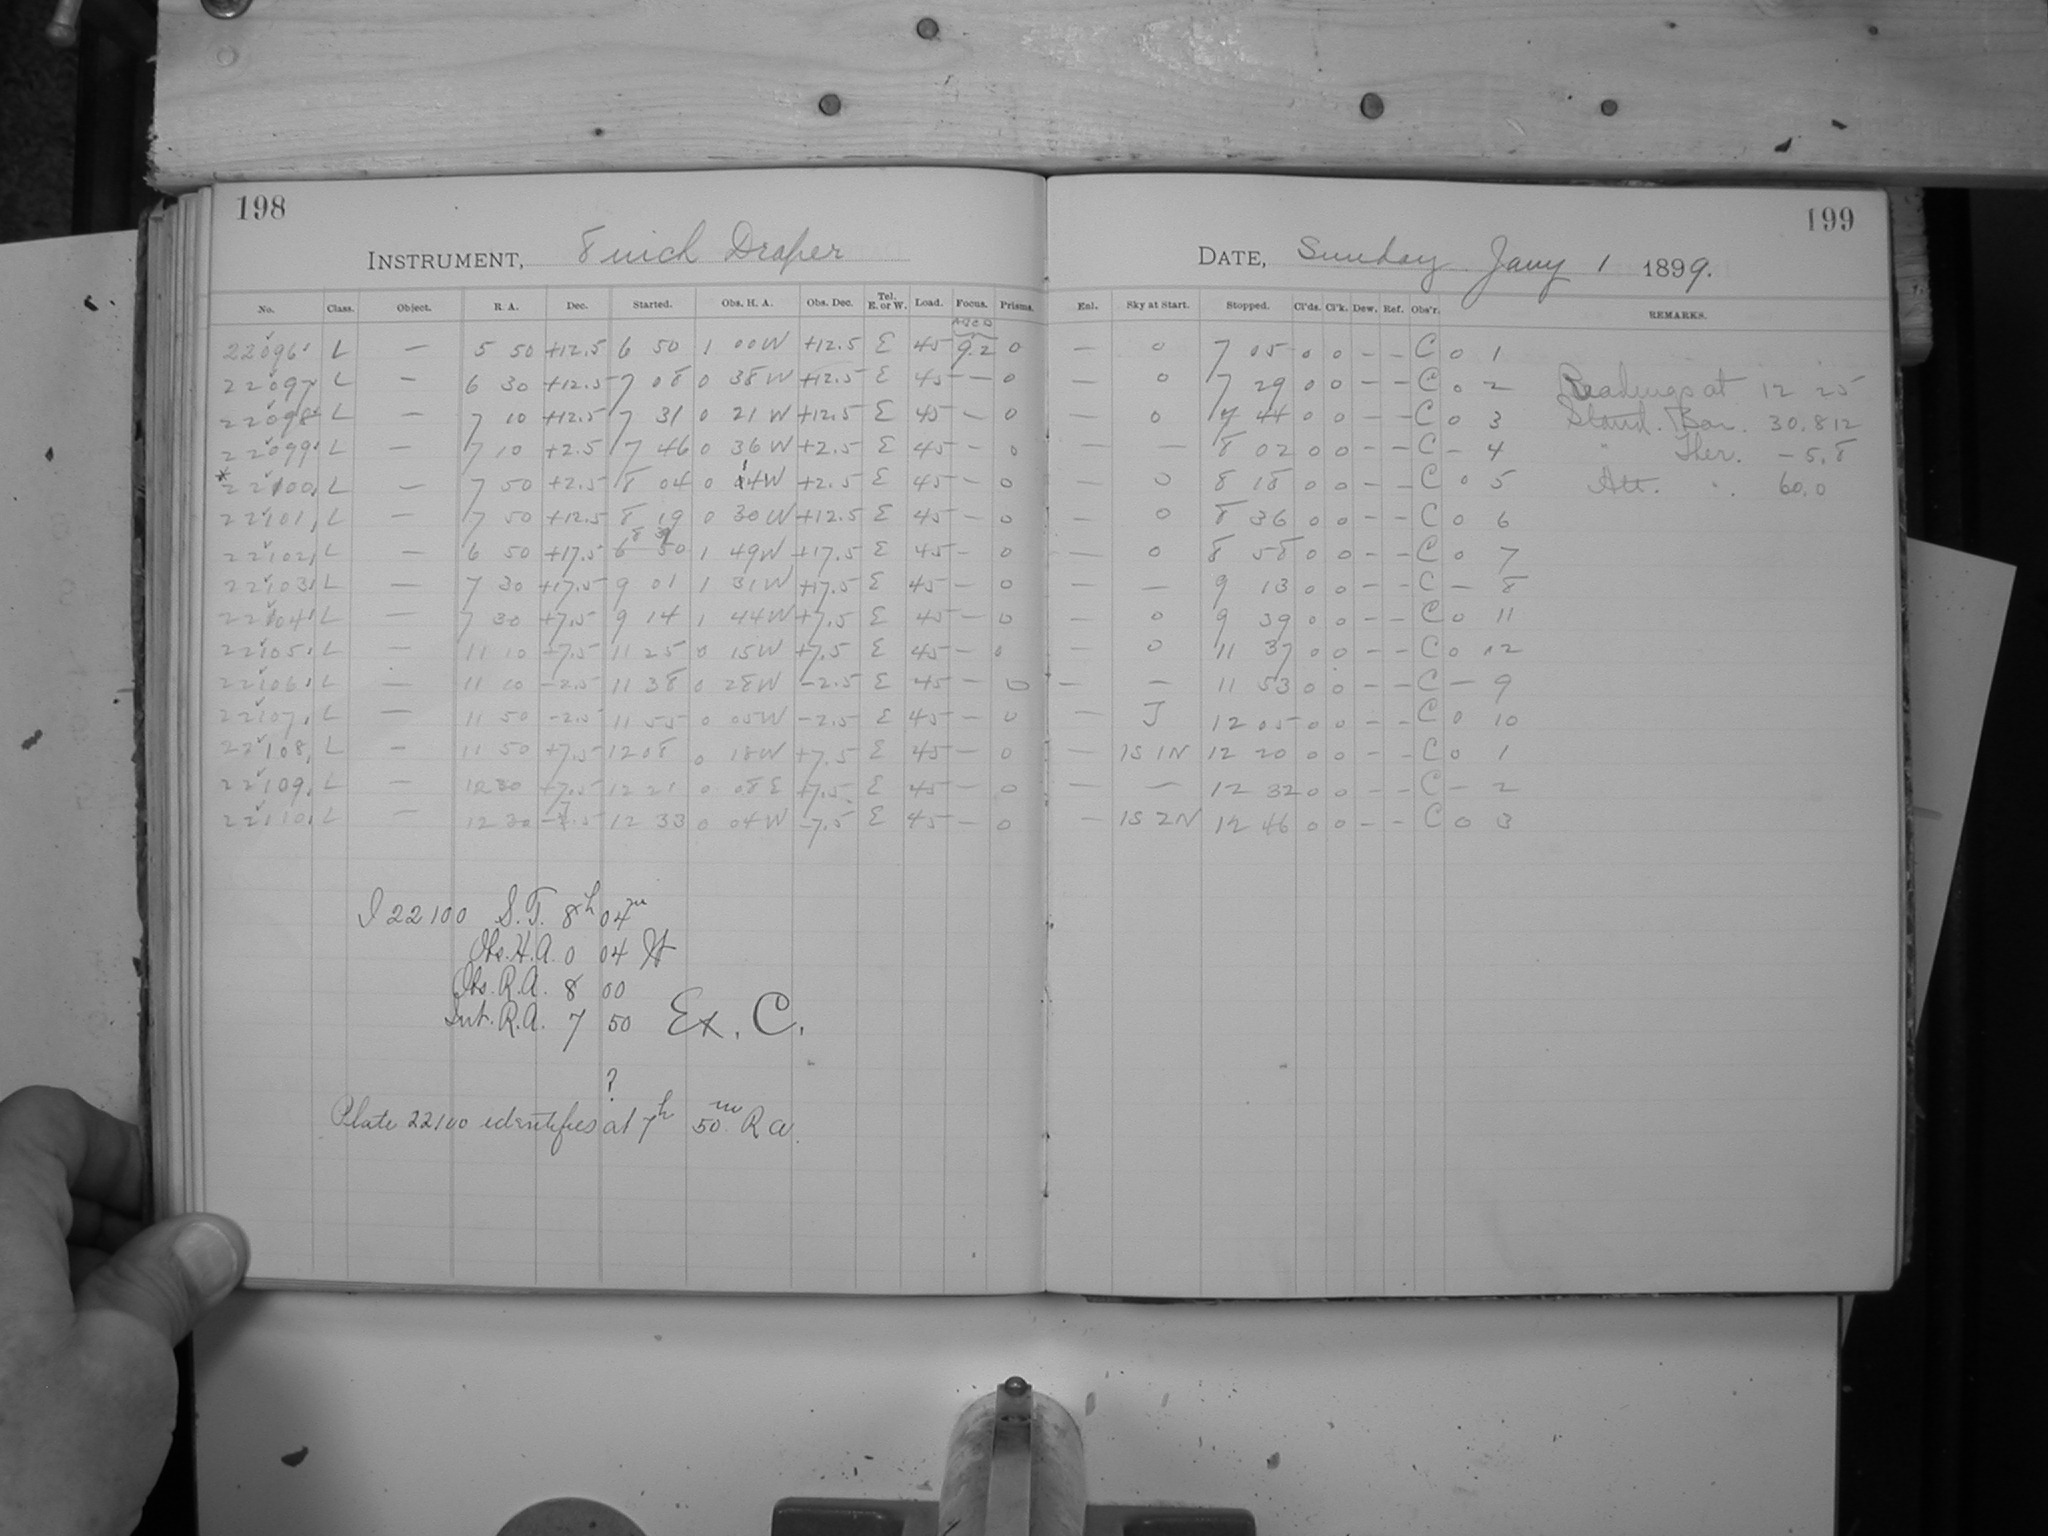 198
INSTRUMENT, 8 inch Draper
No. Class. Object. R. A. Dec. Started. Obs. H. A. Obs. Dec. Tel. E. or W. Load. Focus. Prisms.
22096 L — 5 50 +12.5 6 50 1 00 W +12.5 E 45 9.2 0
22097 L — 6 30 +12.5 7 08 0 38 W +12.5 E 45 — 0
22098 L — 7 10 +12.5 7 31 0 21 W +12.5 E 45 — 0
22099 L — 7 10 +2.5 7 46 0 36 W +2.5 E 45 — 0
* 22100 L — 7 50 +2.5 8 04 0 14 W +2.5 E 45 — 0
22101 L — 7 50 +12.5 8 19 0 30 W +12.5 E 45 — 0
22102 L — 6 50 +17.5 8 39 1 49 W +17.5 E 45 — 0
22103 L — 7 30 +17.5 9 01 1 31 W +17.5 E 45 — 0
22104 L — 7 30 +7.5 9 14 1 44 W +7.5 E 45 — 0
22105 L — 11 10 +7.5 11 25 0 15 W +7.5 E 45 — 0
22106 L — 11 10 -2.5 11 38 0 28 W -2.5 E 45 — 0
22107 L — 11 50 -2.5 11 55 0 05 W -2.5 E 45 — 0
22108 L — 11 50 +7.5 12 08 0 18 W +7.5 E 45 — 0
22109 L — 12 30 +7.5 12 21 0 08 E +7.5 E 45 — 0
22110 L — 12 30 -7.5 12 33 0 04 W -7.5 E 45 — 0
I 22100 S.T. 8h 04m
Obs. H.A. 0 04 W
Obs. R.A. 8 00
Int. R.A. 7 50 Ex. C.
?
Plate 22100 identifies at 7h 50m R a.
199
DATE, Sunday Jany 1 1899.
Enl. Sky at Start. Stopped. Cl'ds. Cl'k. Dew. Ref. Obs'r. REMARKS.
— 0 7 05 0 0 — — C 0 1
— 0 7 29 0 0 — — C 0 2 Readings at 12 25
— 0 7 44 0 0 — — C 0 3 Stand. Bar. 30.812
— — 8 02 0 0 — — C — 4 " Ther. -5.8
— 0 8 18 0 0 — — C 0 5 Att. " 60.0
— 0 8 36 0 0 — — C 0 6
— 0 8 58 0 0 — — C 0 7
— — 9 13 0 0 — — C — 8
— 0 9 39 0 0 — — C 0 11
— 0 11 37 0 0 — — C 0 12
— — 11 53 0 0 — — C — 9
— J 12 05 0 0 — — C 0 10
— 1S 1N 12 20 0 0 — — C 0 1
— — 12 32 0 0 — — C — 2
— 1S 2N 12 46 0 0 — — C 0 3